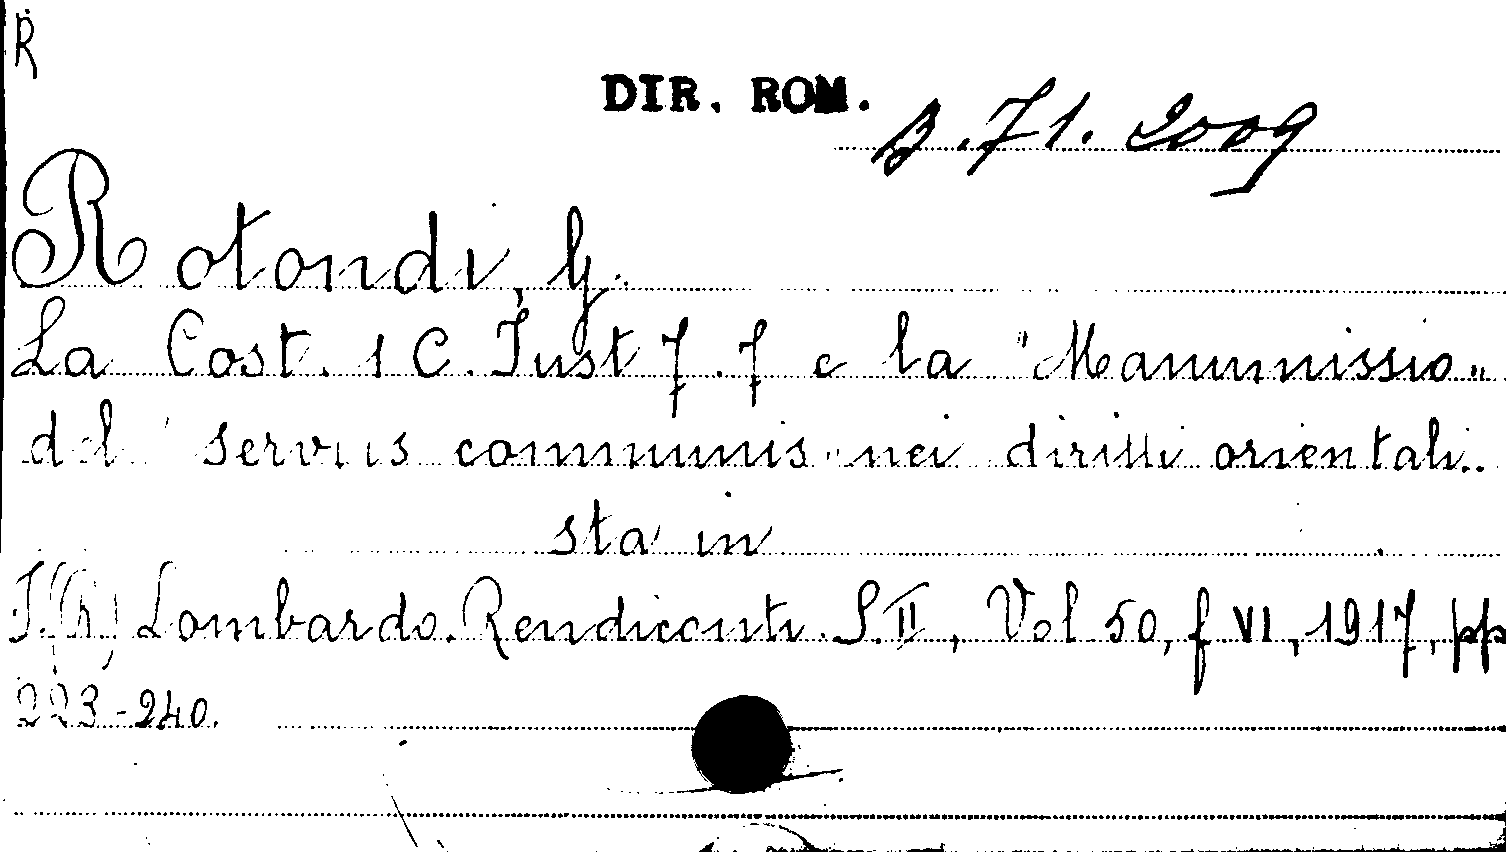 R
DIR. ROM.
B.71.2009
Rotondi, G.
La Cost. 1 C. Just 7.7 e la "Manumissio"
del "servus communis" nei diritti orientali.
sta in
I.(R) Lombardo. Rendiconti. S.II, Vol 50, f VI, 1917, pp
223-240.